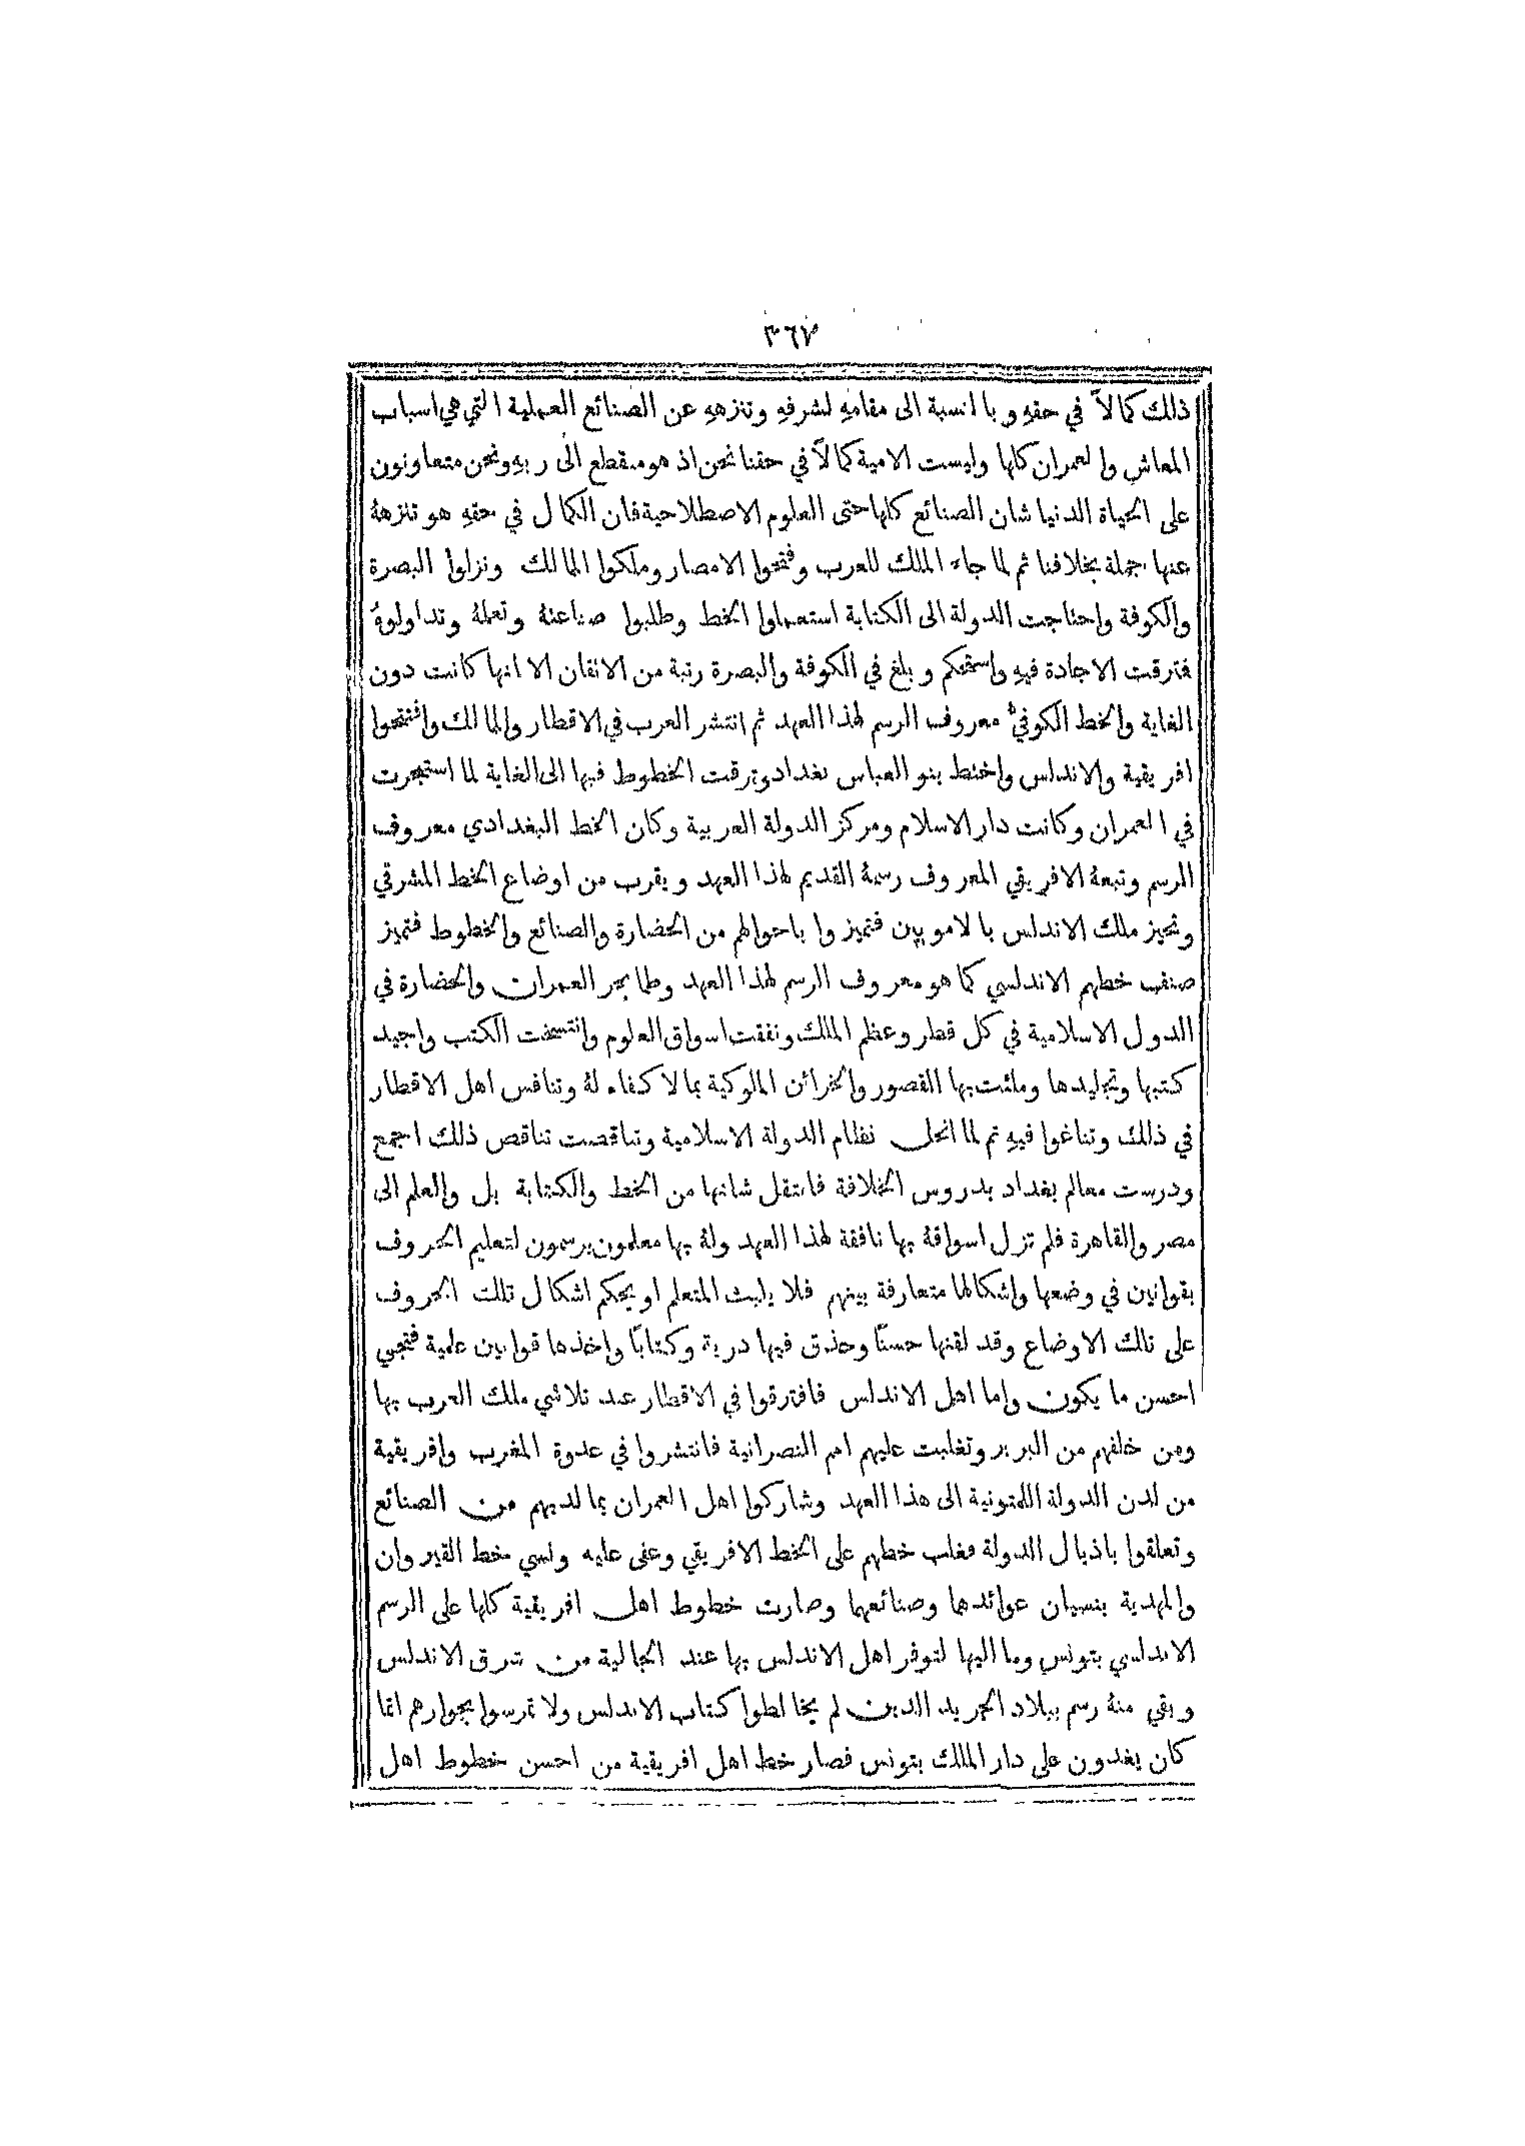 ٣٦٧
ذلك كمالاً في حقهِ وبالنسبة الى مقامهِ لشرفهِ وتنزههِ عن الصنائع العملية التي هي اسباب
المعاش والعمران كلها وليست الامية كمالاً في حقنا نحن اذ هو منقطع الى ربهِ ونحن متعاونون
على الحياة الدنيا شان الصنائع كلها حتى العلوم الاصطلاحية فان الكمال في حقهِ هو تنزههُ
عنها جملة بخلافنا ثم لما جاء الملك للعرب وفتحوا الامصار وملكوا الممالك ونزلوا البصرة
والكوفة واحتاجت الدولة الى الكتابة استعملوا الخط وطلبوا صناعتهُ وتعلمهُ وتداولوهُ
فترقت الاجادة فيهِ واستحكم وبلغ في الكوفة والبصرة رتبة من الاتقان الا انها كانت دون
الغاية والخط الكوفيُّ معروف الرسم لهذا العهد ثم انتشر العرب في الاقطار والممالك وافتتحوا
افريقية والاندلس واختط بنو العباس بغداد وترقت الخطوط فيها الى الغاية لما استبحرت
في العمران وكانت دار الاسلام ومركز الدولة العربية وكان الخط البغدادي معروف
الرسم وتبعهُ الافريقي المعروف رسمهُ القديم لهذا العهد ويقرب من اوضاع الخط المشرقي
وتحيز ملك الاندلس بالامويين فتميزوا باحوالهم من الحضارة والصنائع والخطوط فتميز
صنف خطهم الاندلسي كما هو معروف الرسم لهذا العهد وطما بحر العمران والحضارة في
الدول الاسلامية في كل قطر وعظم الملك ونفقت اسواق العلوم وانتسخت الكتب واجيد
كتبها وتجليدها وملئت بها القصور والخزائن الملوكية بما لا كفاء لهُ وتنافس اهل الاقطار
في ذلك وتناغوا فيهِ ثم لما انحل نظام الدولة الاسلامية وتناقصت تناقص ذلك اجمع
ودرست معالم بغداد بدروس الخلافة فانتقل شانها من الخط والكتابة بل والعلم الى
مصر والقاهرة فلم تزل اسواقهُ بها نافقة لهذا العهد ولهُ بها معلمون يرسمون لتعليم الحروف
بقوانين في وضعها واشكالها متعارفة بينهم فلا يلبث المتعلم او يحكم اشكال تلك الحروف
على تلك الاوضاع وقد لقنها حسنًا وحذق فيها دربة وكتابًا واخذها قوانين علمية فتجي
احسن ما يكون واما اهل الاندلس فافترقوا في الاقطار عند تلاشي ملك العرب بها
ومن خلفهم من البربر وتغلبت عليهم امم النصرانية فانتشروا في عدوة المغرب وافريقية
من لدن الدولة اللمتونية الى هذا العهد وشاركوا اهل العمران بما لديهم من الصنائع
وتعلقوا باذيال الدولة فغلب خطهم على الخط الافريقي وعفى عليه ونسي خط القيروان
والمهدية بنسيان عوائدهما وصنائعهما وصارت خطوط اهل افريقية كلها على الرسم
الاندلسي بتونس وما اليها لتوفر اهل الاندلس بها عند الجالية من شرق الاندلس
وبقي منهُ رسم ببلاد الجريد الذين لم يخالطوا كتاب الاندلس ولا تمرسوا بجوارهم انما
كان يغدون على دار الملك بتونس فصار خط اهل افريقية من احسن خطوط اهل